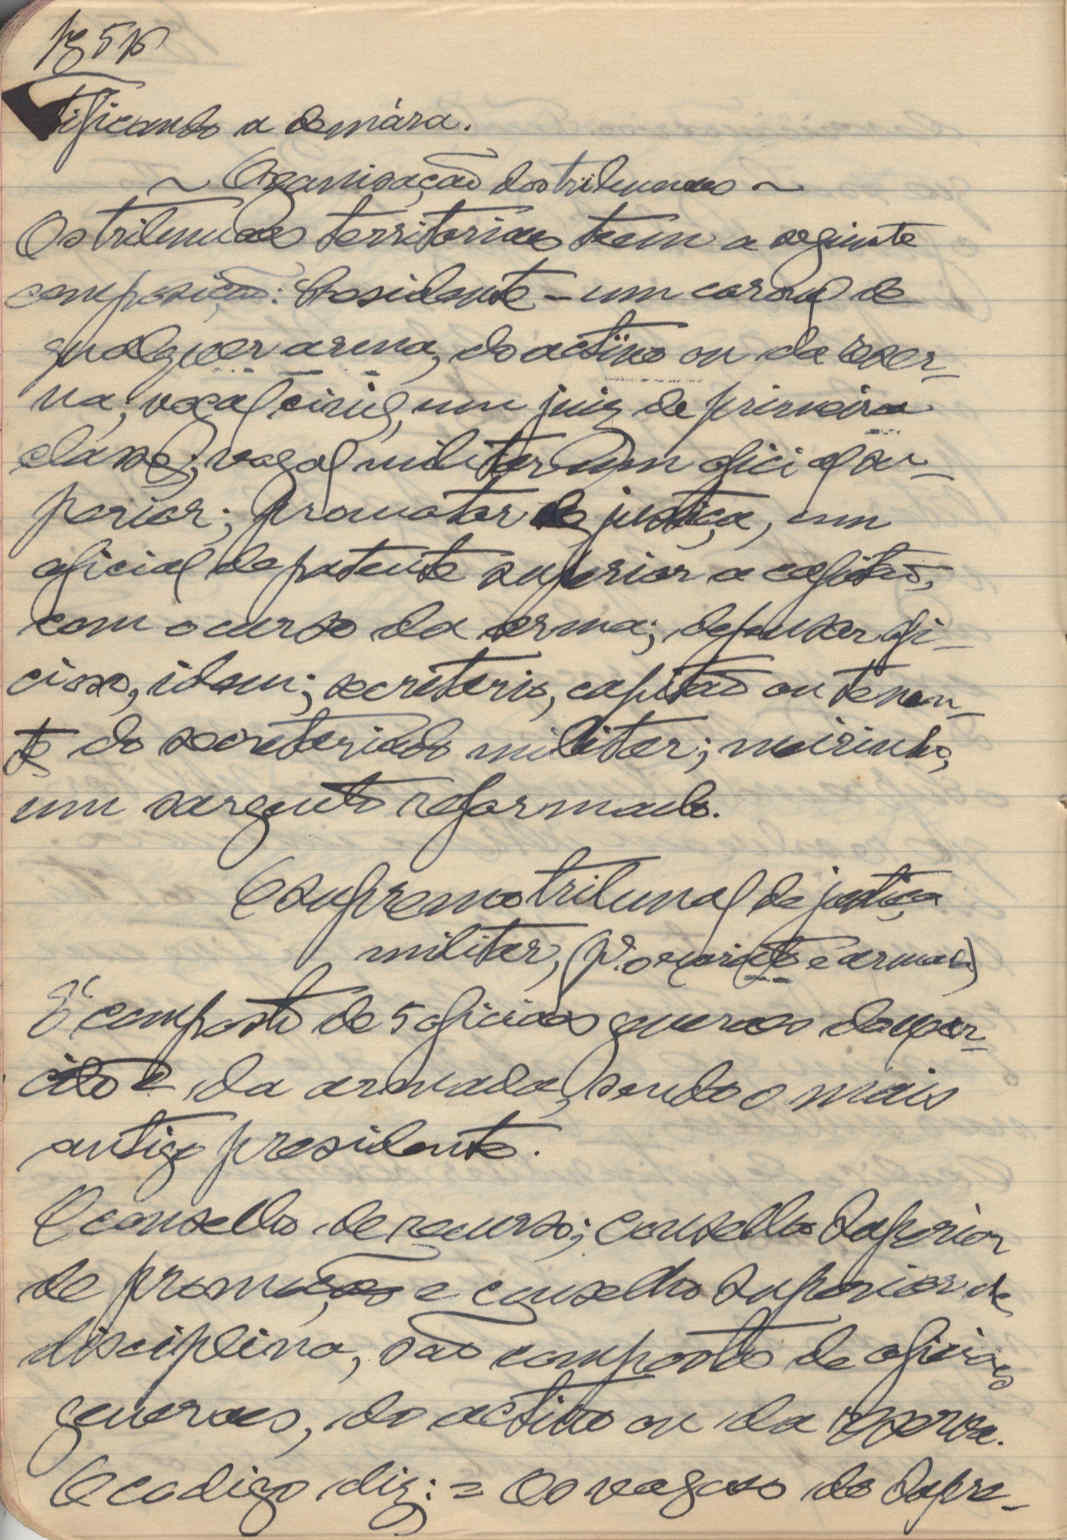 tificando a demóra.
~ Organisação dos tribunaes ~
Os tribunaes territoriaes teem a seguinte
composição: Presidente - um coronel de
qualquer arma, do activo ou da reser-
va; vogal civil, um juiz de primeira
classe; vogal militar um oficial su-
perior; promotor de justiça, um
oficial de patente superior a capitão,
com o curso da arma; defensor ofi-
cioso, idem; secretario, capitão ou tenen-
te do secretariado militar; meirinho,
um sargento reformado.
O supremo tribunal de justiça
militar, (V. exercito e armada)
E' composto de 5 oficiaes generaes do exer-
cito e da armada, sendo o mais
antigo presidente.
O conselho de recurso; conselho Superior
de promoções e conselho Superior de
disciplina, são compostos de oficiaes
generaes, do activo ou da reserva.
O codigo diz: = Os vogaes do Supre-